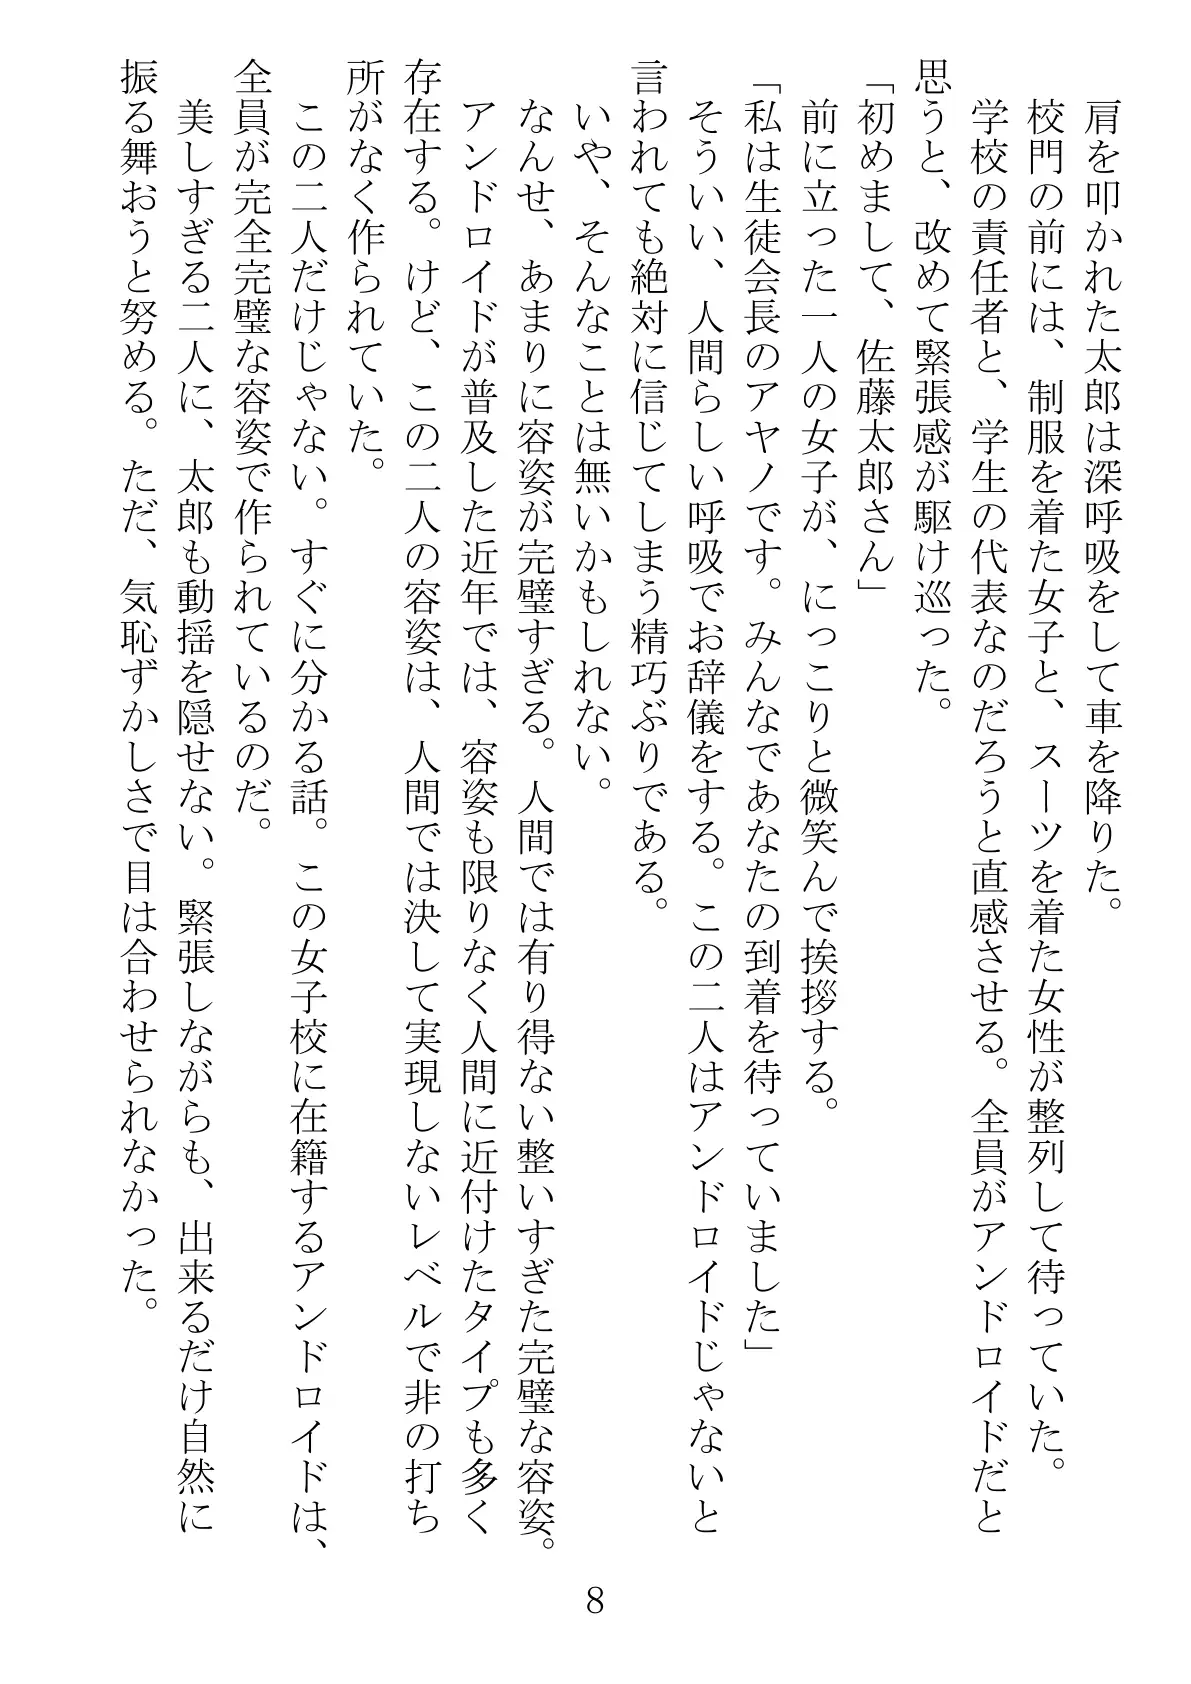 肩を叩かれた太郎は深呼吸をして車を降りた。
校門の前には、制服を着た女子と、スーツを着た女性が整列して待っていた。
学校の責任者と、学生の代表なのだろうと直感させる。全員がアンドロイドだと
思うと、改めて緊張感が駆け巡った。
「初めまして、佐藤太郎さん」
前に立った一人の女子が、にっこりと微笑んで挨拶する。
「私は生徒会長のアヤノです。みんなであなたの到着を待っていました」
そういい、人間らしい呼吸でお辞儀をする。この二人はアンドロイドじゃないと
言われても絶対に信じてしまう精巧ぶりである。
いや、そんなことは無いかもしれない。
なんせ、あまりに容姿が完璧すぎる。人間では有り得ない整いすぎた完璧な容姿。
アンドロイドが普及した近年では、容姿も限りなく人間に近付けたタイプも多く
存在する。けど、この二人の容姿は、人間では決して実現しないレベルで非の打ち
所がなく作られていた。
この二人だけじゃない。すぐに分かる話。この女子校に在籍するアンドロイドは、
全員が完全完璧な容姿で作られているのだ。
美しすぎる二人に、太郎も動揺を隠せない。緊張しながらも、出来るだけ自然に
振る舞おうと努める。ただ、気恥ずかしさで目は合わせられなかった。
8